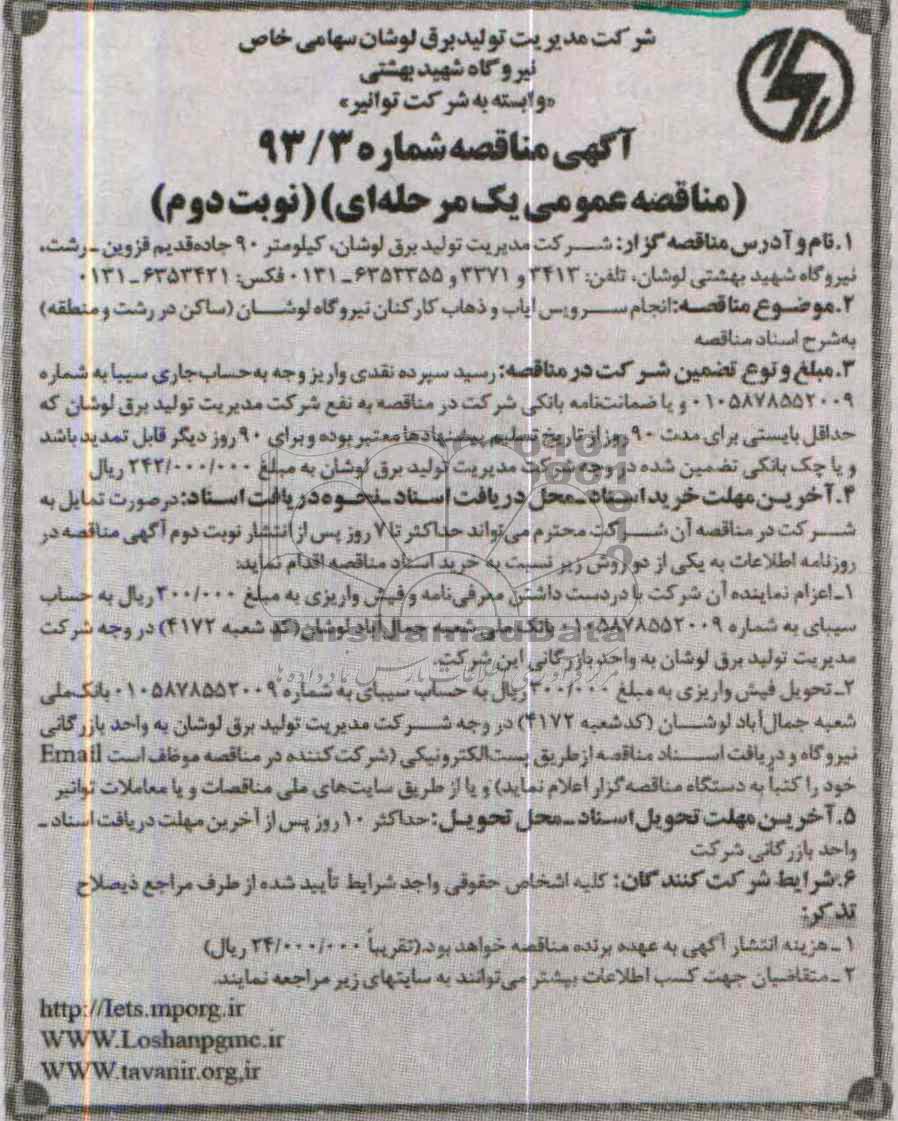 شرکت مدیریت تولید برق لوشان سهامی خاص
نیروگاه شهید بهشتی
«وابسته به شرکت توانیر»
آگهی مناقصه شماره ۹۳/۳
(مناقصه عمومی یک مرحله‌ای) (نوبت دوم)
۱.نام و آدرس مناقصه گزار: شرکت مدیریت تولید برق لوشان، کیلومتر ۹۰ جاده‌قدیم قزوین ـ رشت،
نیروگاه شهید بهشتی لوشان، تلفن: ۳۴۱۳ و ۳۳۷۱ و ۶۳۵۳۳۵۵ ـ ۰۱۳۱ فکس: ۶۳۵۳۴۲۱ ـ ۰۱۳۱
۲.موضوع مناقصه: انجام سرویس ایاب و ذهاب کارکنان نیروگاه لوشان (ساکن در رشت و منطقه)
به‌شرح اسناد مناقصه
۳.مبلغ و نوع تضمین شرکت در مناقصه: رسید سپرده نقدی واریز وجه به‌حساب‌جاری سیبا به شماره
۰۱۰۵۸۷۸۵۵۲۰۰۹ و یا ضمانت‌نامه بانکی شرکت در مناقصه به نفع شرکت مدیریت تولید برق لوشان که
حداقل بایستی برای مدت ۹۰ روز از تاریخ تسلیم پیشنهادها معتبر بوده و برای ۹۰ روز دیگر قابل تمدید باشد
و یا چک بانکی تضمین شده در وجه شرکت مدیریت تولید برق لوشان به مبلغ ۲۴۲/۰۰۰/۰۰۰ ریال
۴.آخرین مهلت خرید اسناد ـ محل دریافت اسناد ـ نحوه دریافت اسناد: درصورت تمایل به
شرکت در مناقصه آن شرکت محترم می‌تواند حداکثر تا ۷ روز پس از انتشار نوبت دوم آگهی مناقصه در
روزنامه اطلاعات به یکی از دو روش زیر نسبت به خرید اسناد مناقصه اقدام نماید:
۱ـ اعزام نماینده آن شرکت با دردست داشتن معرفی‌نامه و فیش واریزی به مبلغ ۳۰۰/۰۰۰ ریال به حساب
سیبای به شماره ۰۱۰۵۸۷۸۵۵۲۰۰۹ بانک ملی شعبه جمال‌آباد لوشان (کد شعبه ۴۱۷۲) در وجه شرکت
مدیریت تولید برق لوشان به واحد بازرگانی این شرکت.
۲ـ تحویل فیش واریزی به مبلغ ۳۰۰/۰۰۰ ریال به حساب سیبای به شماره ۰۱۰۵۸۷۸۵۵۲۰۰۹ بانک‌ملی
شعبه جمال‌آباد لوشان (کدشعبه ۴۱۷۲) در وجه شرکت مدیریت تولید برق لوشان به واحد بازرگانی
نیروگاه و دریافت اسناد مناقصه ازطریق پست‌الکترونیکی (شرکت‌کننده در مناقصه موظف است Email
خود را کتباً به دستگاه مناقصه‌گزار اعلام نماید) و یا از طریق سایت‌های ملی مناقصات و یا معاملات توانیر
۵.آخرین مهلت تحویل اسناد ـ محل تحویل: حداکثر ۱۰ روز پس از آخرین مهلت دریافت اسناد ـ
واحد بازرگانی شرکت
۶.شرایط شرکت کنندگان: کلیه اشخاص حقوقی واجد شرایط تأیید شده از طرف مراجع ذیصلاح
تذکر:
۱ ـ هزینه انتشار آگهی به عهده برنده مناقصه خواهد بود.(تقریباً ۲۴/۰۰۰/۰۰۰ ریال)
۲ ـ متقاضیان جهت کسب اطلاعات بیشتر می‌توانند به سایتهای زیر مراجعه نمایند.
http://Iets.mporg.ir
WWW.Loshanpgmc.ir
WWW.tavanir.org,ir
ParsNamadData